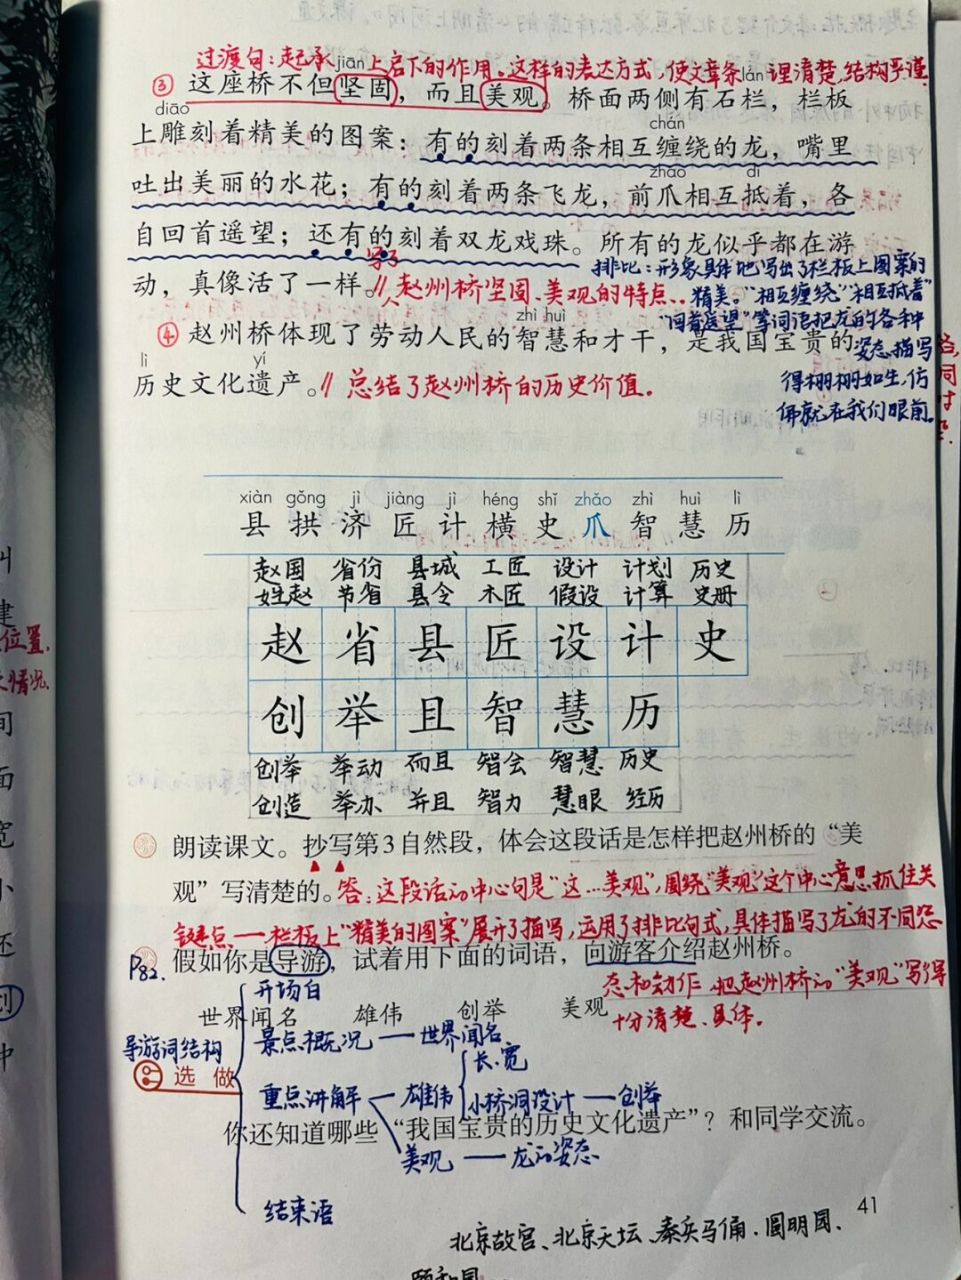 过渡句:起承上启下的作用。这样的表达方式,使文章条理清楚,结构严谨.
jiān lán
③ 这座桥不但坚固,而且美观。桥面两侧有石栏,栏板
diāo chán
上雕刻着精美的图案:有的刻着两条相互缠绕的龙,嘴里
zhǎo dǐ
吐出美丽的水花;有的刻着两条飞龙,前爪相互抵着,各
自回首遥望;还有的刻着双龙戏珠。所有的龙似乎都在游
排比:形象具体地写出了栏板上图案的
动,真像活了一样。// 写了赵州桥坚固、美观的特点.
精美。“相互缠绕”“相互抵着”
“回首遥望”等词语把龙的各种
zhì huì
④ 赵州桥体现了劳动人民的智慧和才干,是我国宝贵的
姿态描写
lì yí
历史文化遗产。// 总结了赵州桥的历史价值.
得栩栩如生,仿
佛就在我们眼前.
xiàn gǒng jì jiàng jì héng shǐ zhǎo zhì huì lì
县 拱 济 匠 计 横 史 爪 智 慧 历
赵国 省份 县城 工匠 设计 计划 历史
姓赵 节省 县令 木匠 假设 计算 史册
赵 省 县 匠 设 计 史
创 举 且 智 慧 历
创举 举动 而且 智会 智慧 历史
创造 举办 并且 智力 慧眼 经历
朗读课文。抄写第3自然段,体会这段话是怎样把赵州桥的“美
观”写清楚的。答:这段话的中心句是“这…美观”,围绕“美观”这个中心意思抓住关
键点——栏板上“精美的图案”展开了描写,运用了排比句式,具体描写了龙的不同姿
P82.
假如你是导游,试着用下面的词语,向游客介绍赵州桥。
态和动作,把赵州桥的“美观”写得
十分清楚、具体.
世界闻名 雄伟 创举 美观
导游词结构
开场白
景点概况——世界闻名
重点讲解
雄伟
长、宽
小桥洞设计——创举
美观——龙的姿态
结束语
选做
你还知道哪些“我国宝贵的历史文化遗产”?和同学交流。
41
北京故宫、北京天坛、秦兵马俑、圆明园、
颐和园